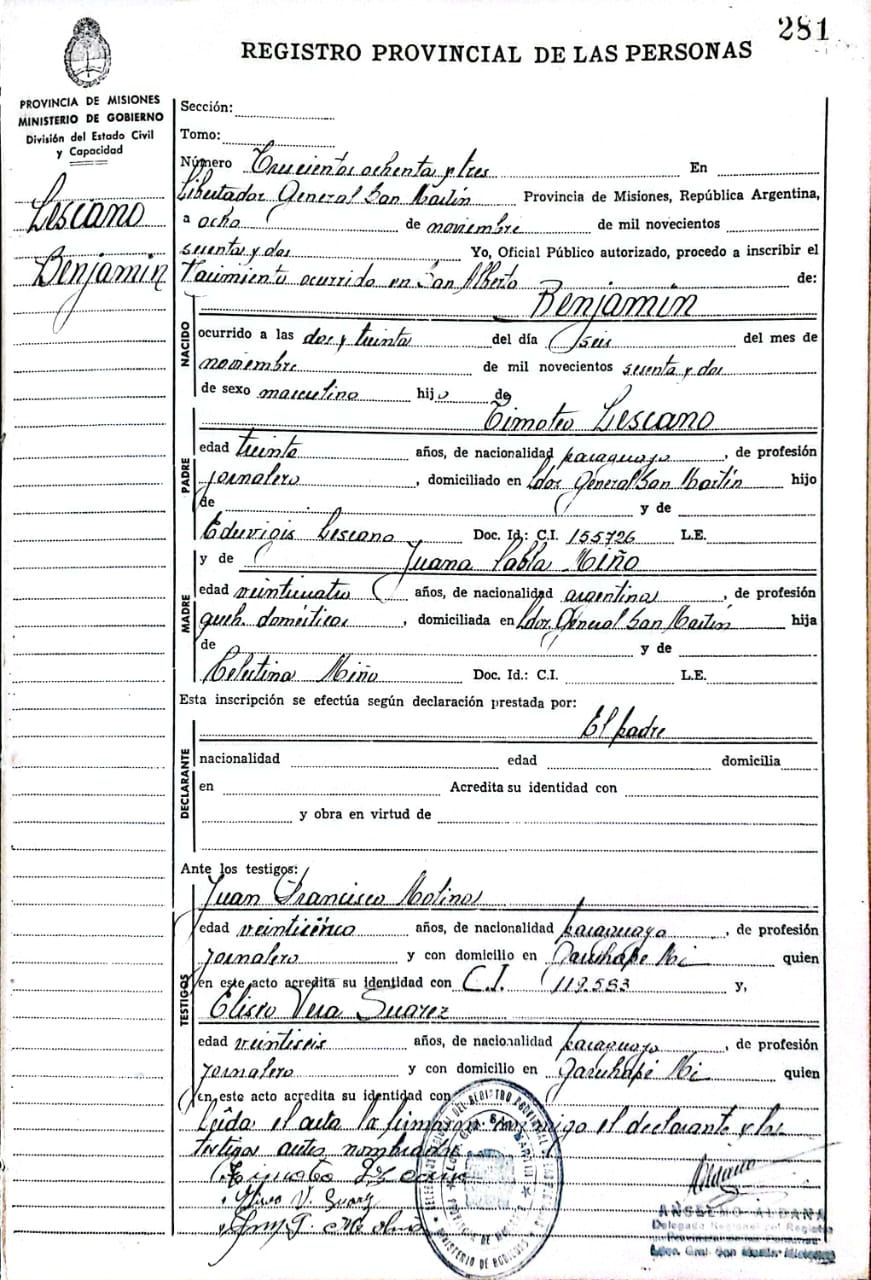 281
REGISTRO PROVINCIAL DE LAS PERSONAS
PROVINCIA DE MISIONES
MINISTERIO DE GOBIERNO
División del Estado Civil
y Capacidad
Lescano
Benjamin
Sección:
Tomo:
Número Trescientos ochenta y tres En
Libertador General San Martín Provincia de Misiones, República Argentina,
a ocho de noviembre de mil novecientos
sesenta y dos Yo, Oficial Público autorizado, procedo a inscribir el
Nacimiento ocurrido en San Alberto de:
Benjamin
NACIDO
ocurrido a las dos y treinta del día seis del mes de
noviembre de mil novecientos sesenta y dos
de sexo masculino hijo de
Timoteo Lescano
PADRE
edad treinta años, de nacionalidad paraguayo, de profesión
jornalero, domiciliado en Ldor. General San Martín hijo
de y de
Eduvigis Lescano Doc. Id.: C.I. 155726 L.E.
y de Juana Pabla Miño
MADRE
edad veinticuatro años, de nacionalidad argentina, de profesión
queh. domésticos, domiciliada en Ldor. General San Martín hija
de y de
Celestina Miño Doc. Id.: C.I. L.E.
Esta inscripción se efectúa según declaración prestada por:
El padre
DECLARANTE
nacionalidad edad domicilia
en Acredita su identidad con
y obra en virtud de
Ante los testigos:
Juan Francisco Molina
TESTIGOS
edad veinticinco años, de nacionalidad paraguayo, de profesión
jornalero y con domicilio en Garuhapé Mi quien
en este acto acredita su identidad con C.I. 119.583 y,
Eliseo Vera Suarez
edad veintiseis años, de nacionalidad paraguayo, de profesión
jornalero y con domicilio en Garuhapé Mi quien
en este acto acredita su identidad con
Leída el acta la firmaron conmigo el declarante y los
testigos antes nombrados
Eliseo V. Suarez
Aldana
ANSELMO ALDANA
Delegado Regional del Registro
Provincial de las Personas
Ldor. Gral. San Martín Misiones